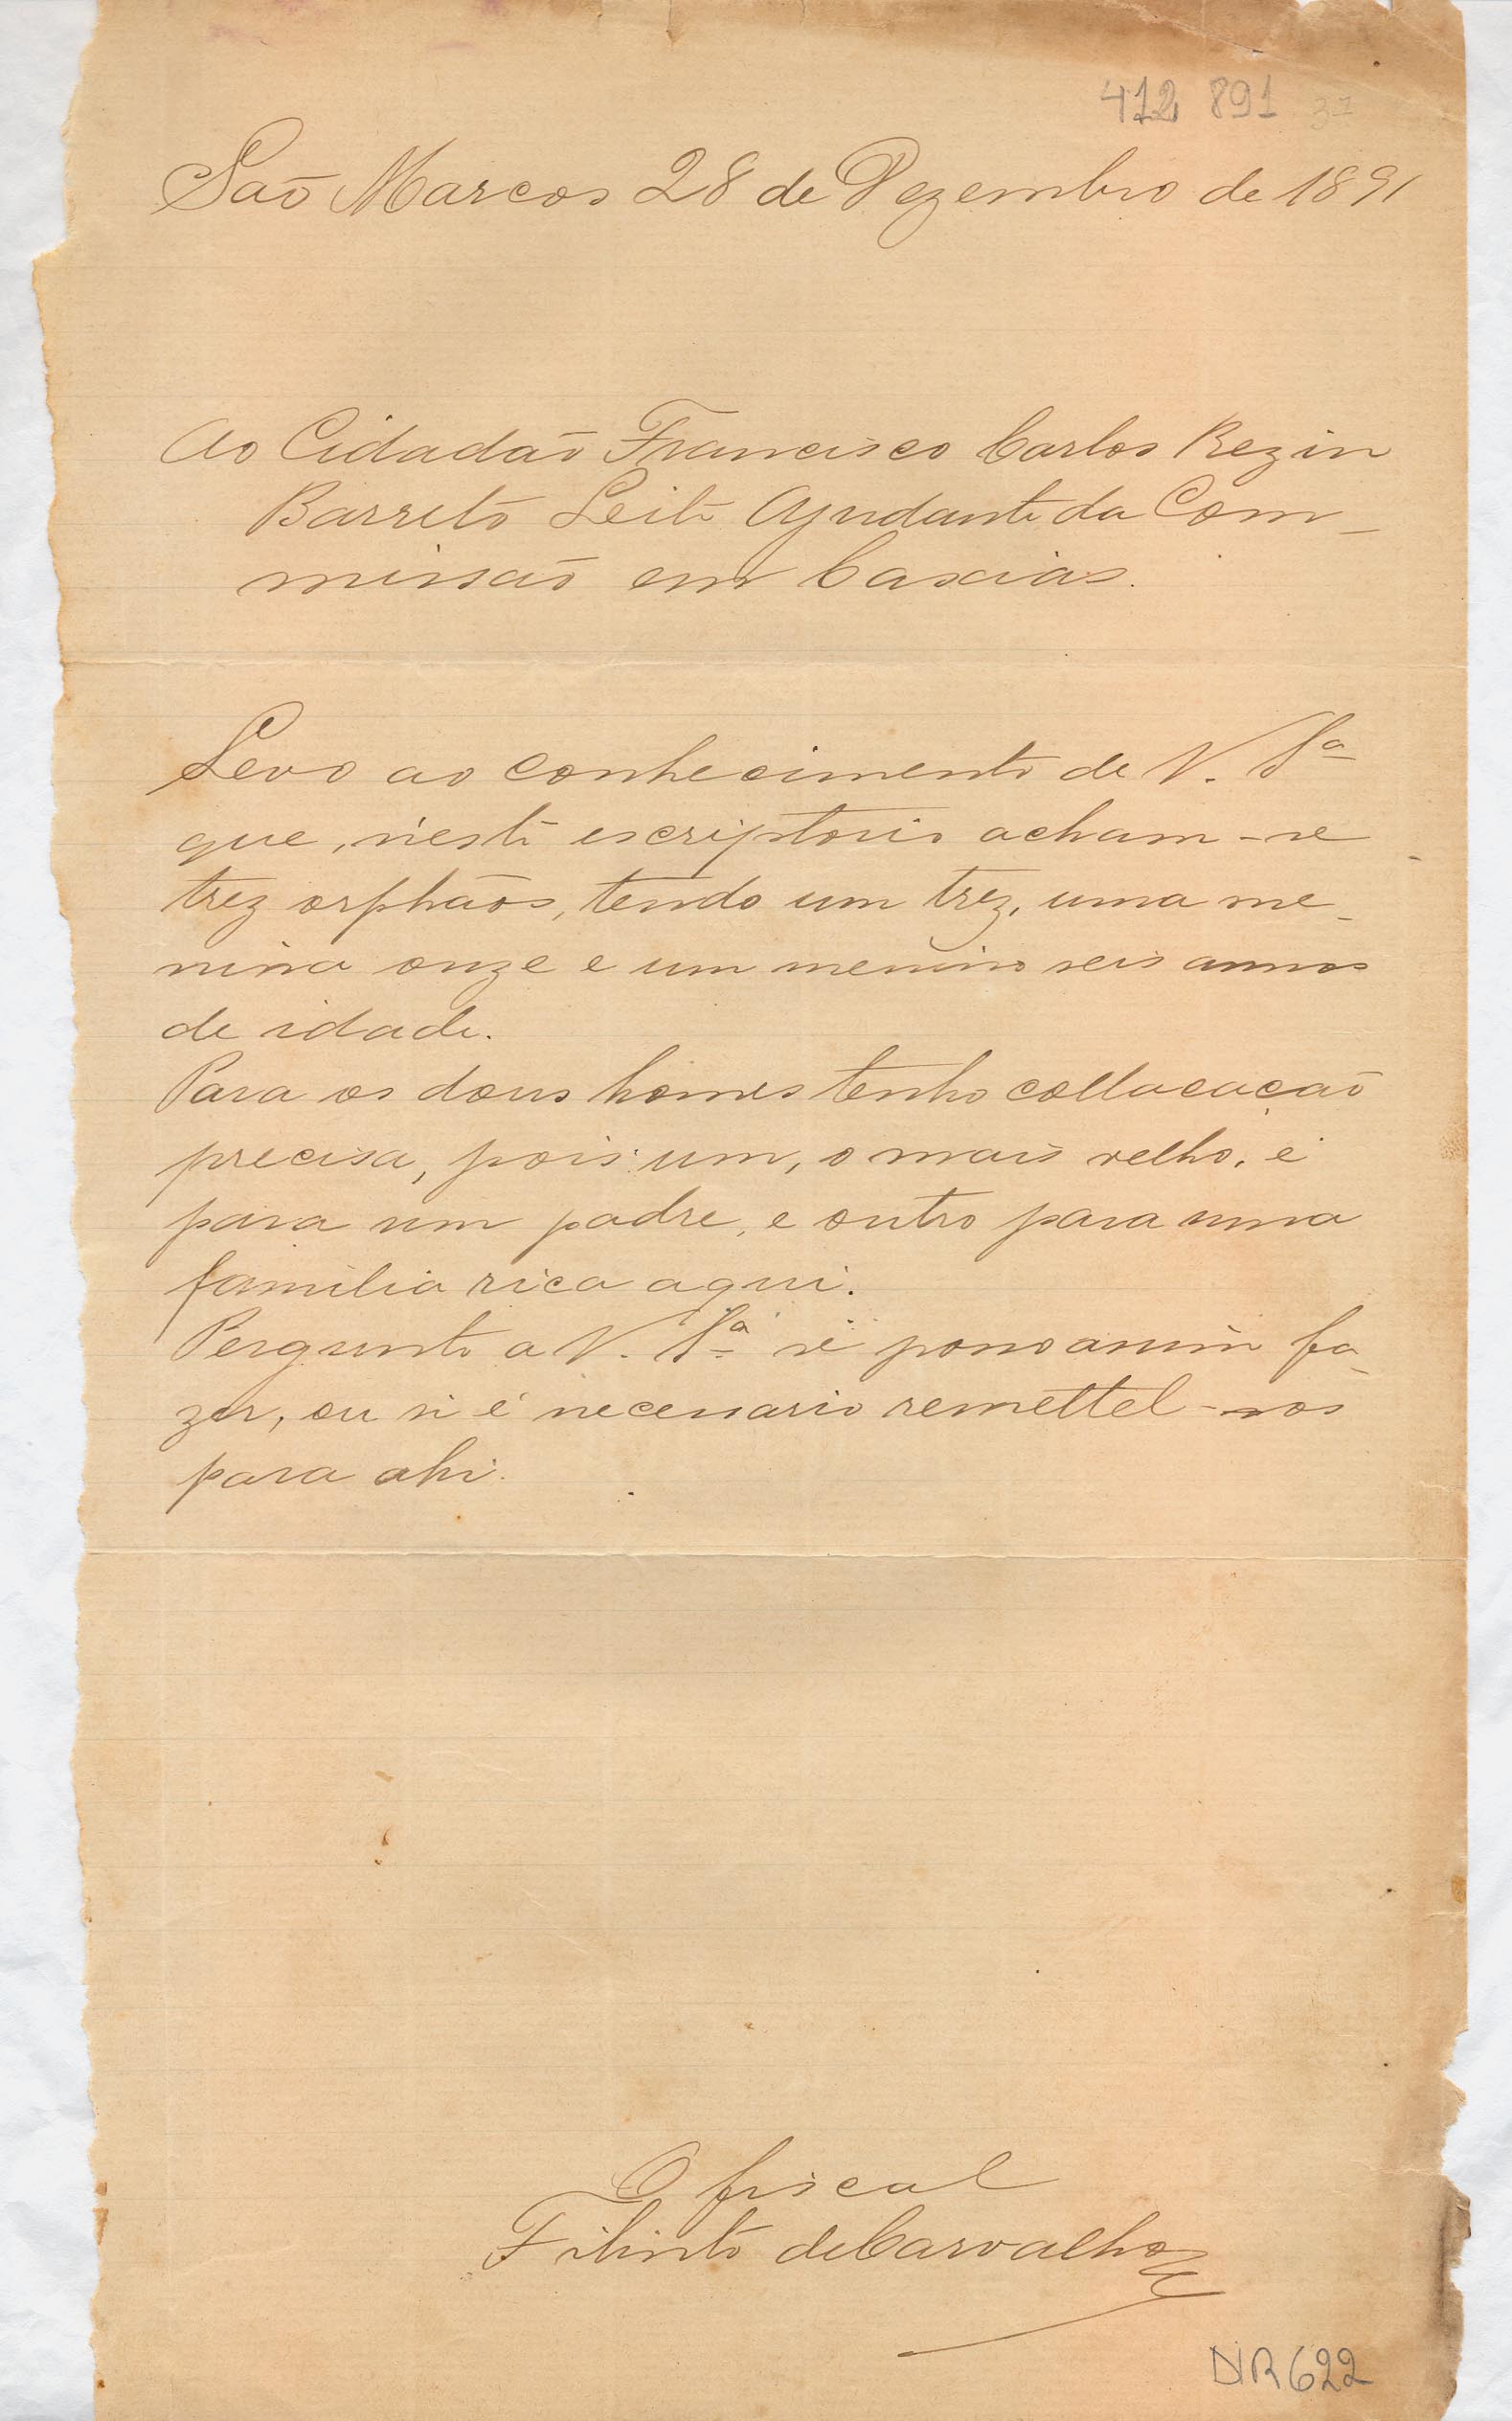 412 891 37
São Marcos 28 de Dezembro de 1891
Ao Cidadão Francisco Carlos Rezin
Barreto Leite Ajudante da Com-
missão em Caxias.
Levo ao conhecimento de V. Sª
que, n'este escriptorio acham-se
trez orphãos, tendo um trez, uma me-
nina onze e um menino seis annos
de idade.
Para os dous homes tenho collacação
precisa, pois um, o mais velho, é
para um padre, e outro para uma
familia rica aqui.
Pergunto a V. Sª se posso assim fa-
zer, ou si é necessario remettel-nos
para ahi.
O fiscal
Filinto de Carvalho
NR622